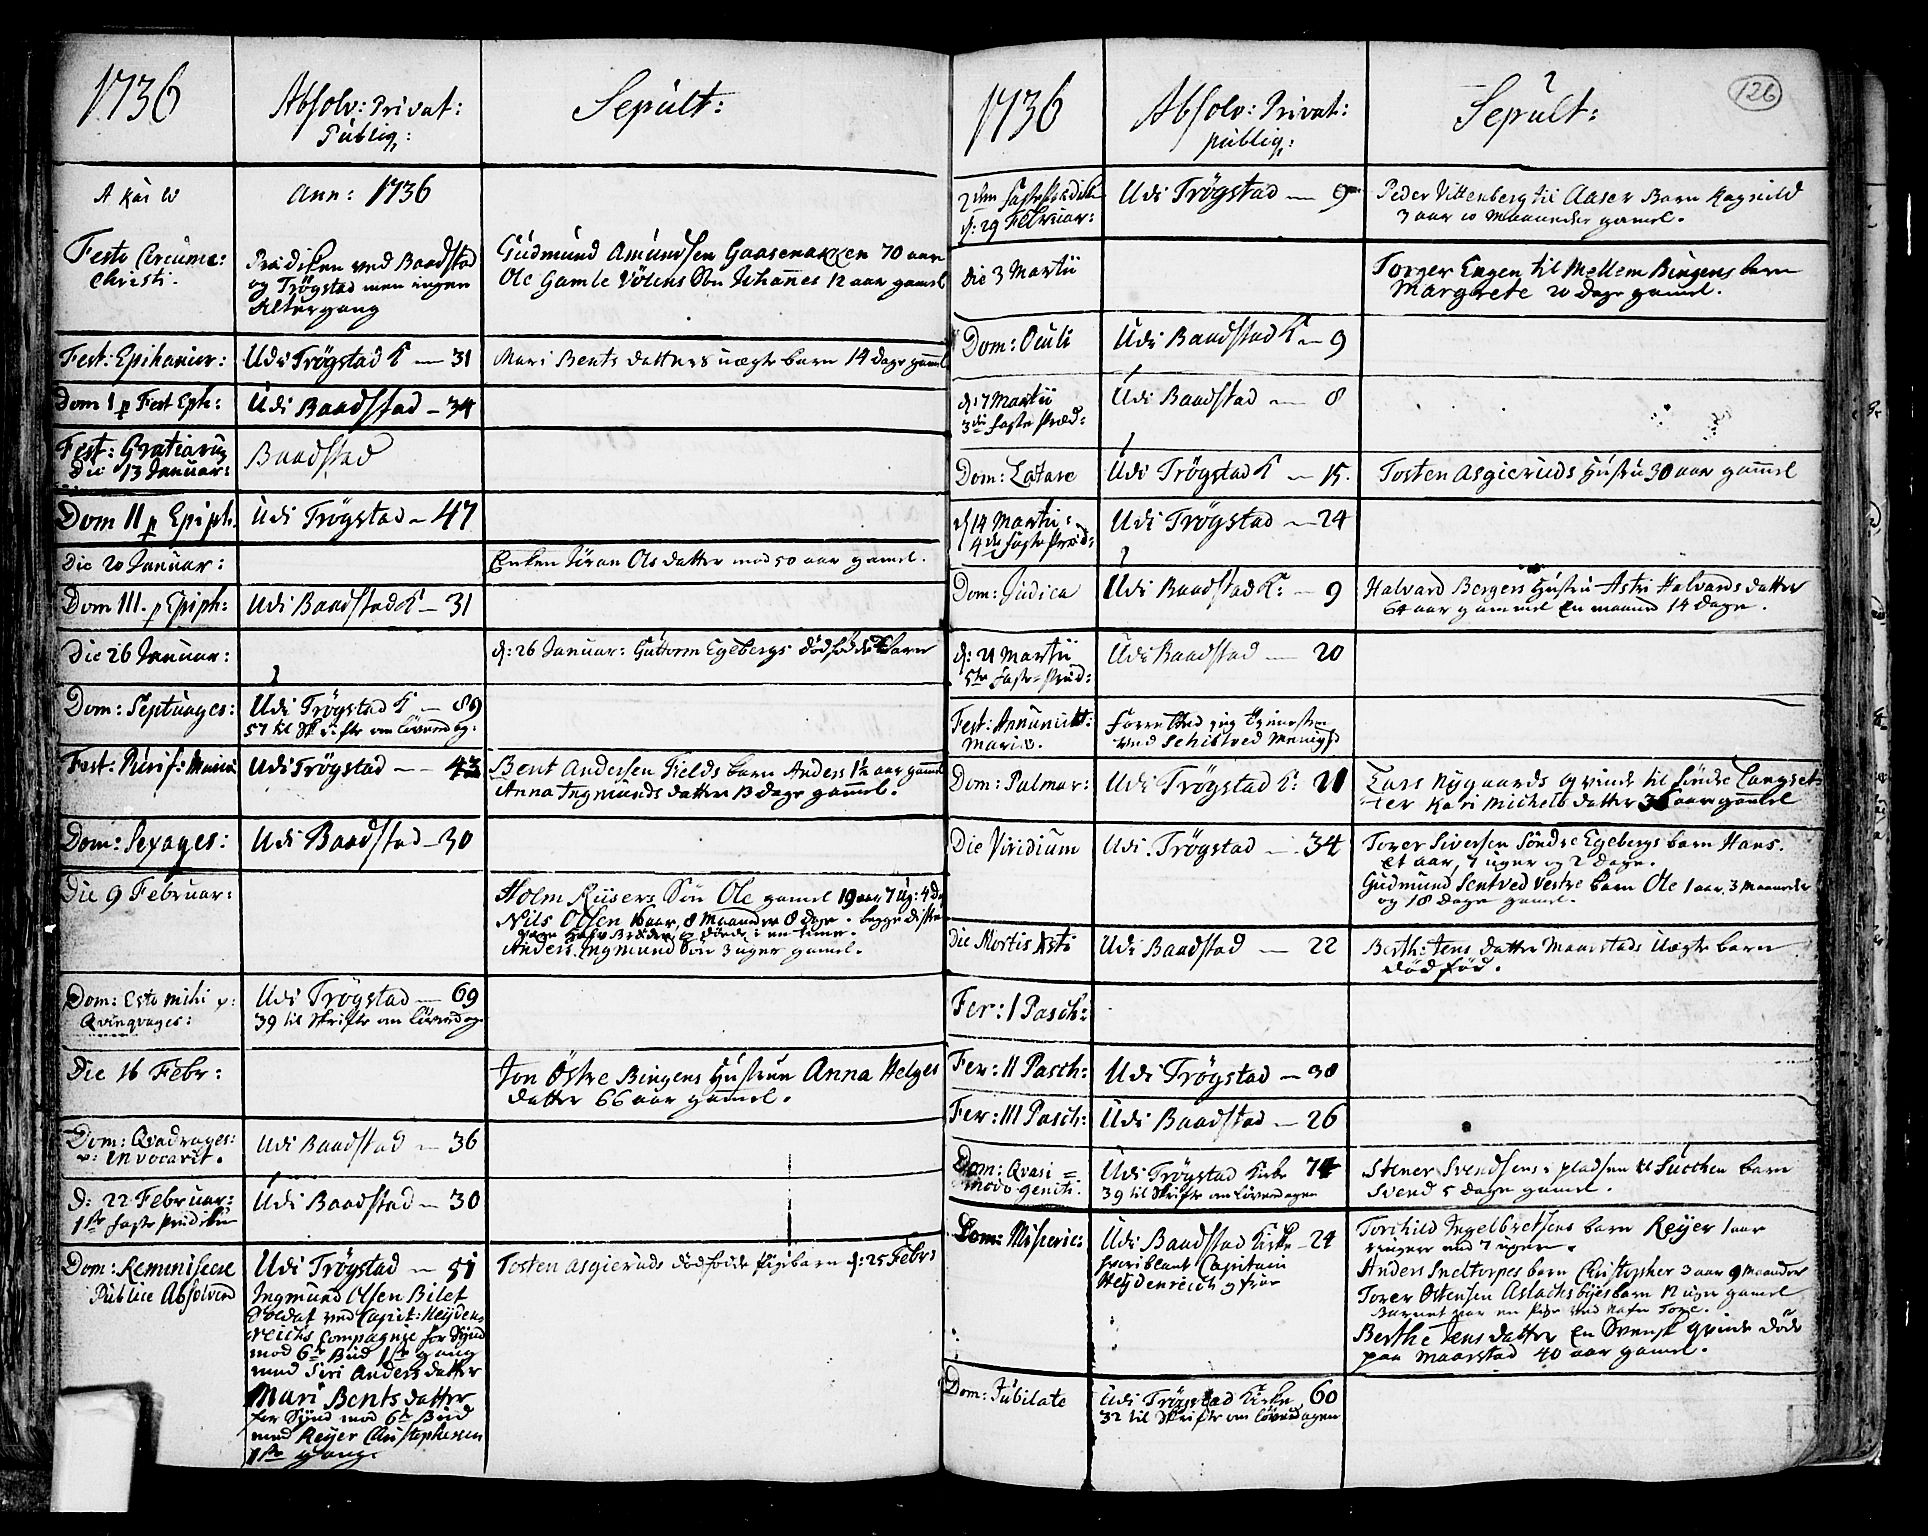 1736
Absolv: Privat:
Publiq:
Sepult:
Ann: 1736
Festo Circumc:
Christi.
Prædiken ved Baadstad
og Trøgstad men ingen
Altergang
Gudmund Amundsen Gaasenakken 70 aar
Ole Gamle Vølens Søn Johannes 12 aar gamel
Fest: Epihanier:
Udi Trøgstad K — 31
Mari Bents datters uægte barn 14 dage gamel
Dom 1 p Fest Eph:
Udi Baadstad — 34
Fest: Gratiarum
Die 13 Januar:
Baadstad
Dom II p Epiph.
Udi Trøgstad — 47
Die 20 Januar:
Enken Jöran Ols datter mod 50 aar gamel.
Dom III. p Epiph:
Udi Baadstad K — 31
Die 26 Januar:
d: 26 Januar: Guttorm Egebergs dödfödde Barn
Dom: Septuages:
Udi Trøgstad K — 89
57 til Skrifte om Löverdag:
Fest: Purif: Mariæ
Udi Trøgstad — 43
Bent Andersen Kields barn Anders 1½ aar gamel
Anna Ingmunds datter 13 dage gamel.
Dom: Sexages:
Udi Baadstad — 30
Die 9 Februar:
Holm Riisers Søn Ole gamel 19 aar 7 ug: 4 d
Nils Olsen 16 aar, 8 Maaneder 8 dage. begge disse
vare Halv Brødre, og døde i en time.
Anders Ingmund Søn 3 uger gamel.
Dom: Esto mihi v:
Qvinqvages:
Udi Trøgstad — 69
39 til Skrifte om Löverdag
Die 16 Febr:
Jon Östre Bingens Hustrue Anna Helges
datter 66 aar gamel.
Dom: Qvadrages:
v: invocavit.
Udi Baadstad — 36
D: 22 Februar:
1ste faste Prædiken
Udi Baadstad — 30
Dom: Reminiscere
Publice Absolvered
Udi Trøgstad — 51
Ingmund Olsen Bilet
Soldat ved Capit: Heyden-
reichs Compagnie for Synd
mod 6te Bud 1ste gang
med Siri Anders datter
Mari Bents datter
for Synd mod 6te Bud
med Reyer Christophersen
1ste gang.
Tosten Asgieruds dödfödde Pigebarn d: 25 Febr:
1736
Absolv: Privat:
publiq:
Sepult:
126
2den Faste Prædiken
d: 29 Februar:
Udi Trøgstad — 9
Peder Vittenberg til Aaser Barn Ragnild
3 aar 10 Maaneder gamel.
Die 3 Martii
Torger Engen til Mellem Bingens barn
Margrete 20 dage gamel.
Dom: Oculi
Udi Baadstad K — 9
d: 7 Martii
3die Faste Præd:
Udi Baadstad — 8
Dom: Lætare
Udi Trøgstad K — 15.
Tosten Asgieruds Hustru 30 aar gamel
d 14 Martii:
4de Faste Præd:
Udi Trøgstad — 24
Dom: Judica
Udi Baadstad K: — 9
Halvard Bergers Hustru Astri Halvards datter
64 aar gammel en maaned 14 dage.
d: 21 Martii
5te Faste Præd:
Udi Baadstad — 20
Fest: Annunciat:
Mariæ.
Forrettede jeg tienesten
ved Schibtved Menighd
Dom: Palmar:
Udi Trøgstad K: 21
Lars Nygaards qvinde til Søndre Langset-
ter Kari Michels datter 36 aar gamel
Die Viridium
Udi Trøgstad — 34
Torer Siversen Söndre Egebergs barn Hans.
et aar, 7 uger og 2 dage.
Gudmund Sentved Vestre barn Ole 1 aar 3 Maaneder
og 18 dage gamel.
Die Mortis Xsti
Udi Baadstad — 22
Berthe Jens datter Maarstads Uægte barn
dödföd.
Fer: I Pasch:
Fer: II Pasch:
Udi Trøgstad — 38
Fer: III Pasch:
Udi Baadstad — 26
Dom: Qvasi=
modo geniti.
Udi Trøgstad Kirke 74
39 til Skrifte om Löverdagen
Stener Svendsens i pladsen til Suothen barn
Svend 5 dage gamel.
Dom: Miseric:
Udi Baadstad Kirke — 24
hvoriblant Capitain
Heydenreich og frue
Torchild Ingelbretsens barn Reyer 1 aar
ringere end 7 uger.
Anders Sneltorpes barn Christopher 3 aar 9 Maander
Torer Ostensen Aslachsbyes barn 12 uger gamel
Barnet var en Pige ved Nafn Tore.
Berthe Jens datter en Svensk qvinde døde
paa Maarstad 40 aar gamel.
Dom: Jubilate
Udi Trøgstad Kirke 60
32 til Skrifte om Löverdagen